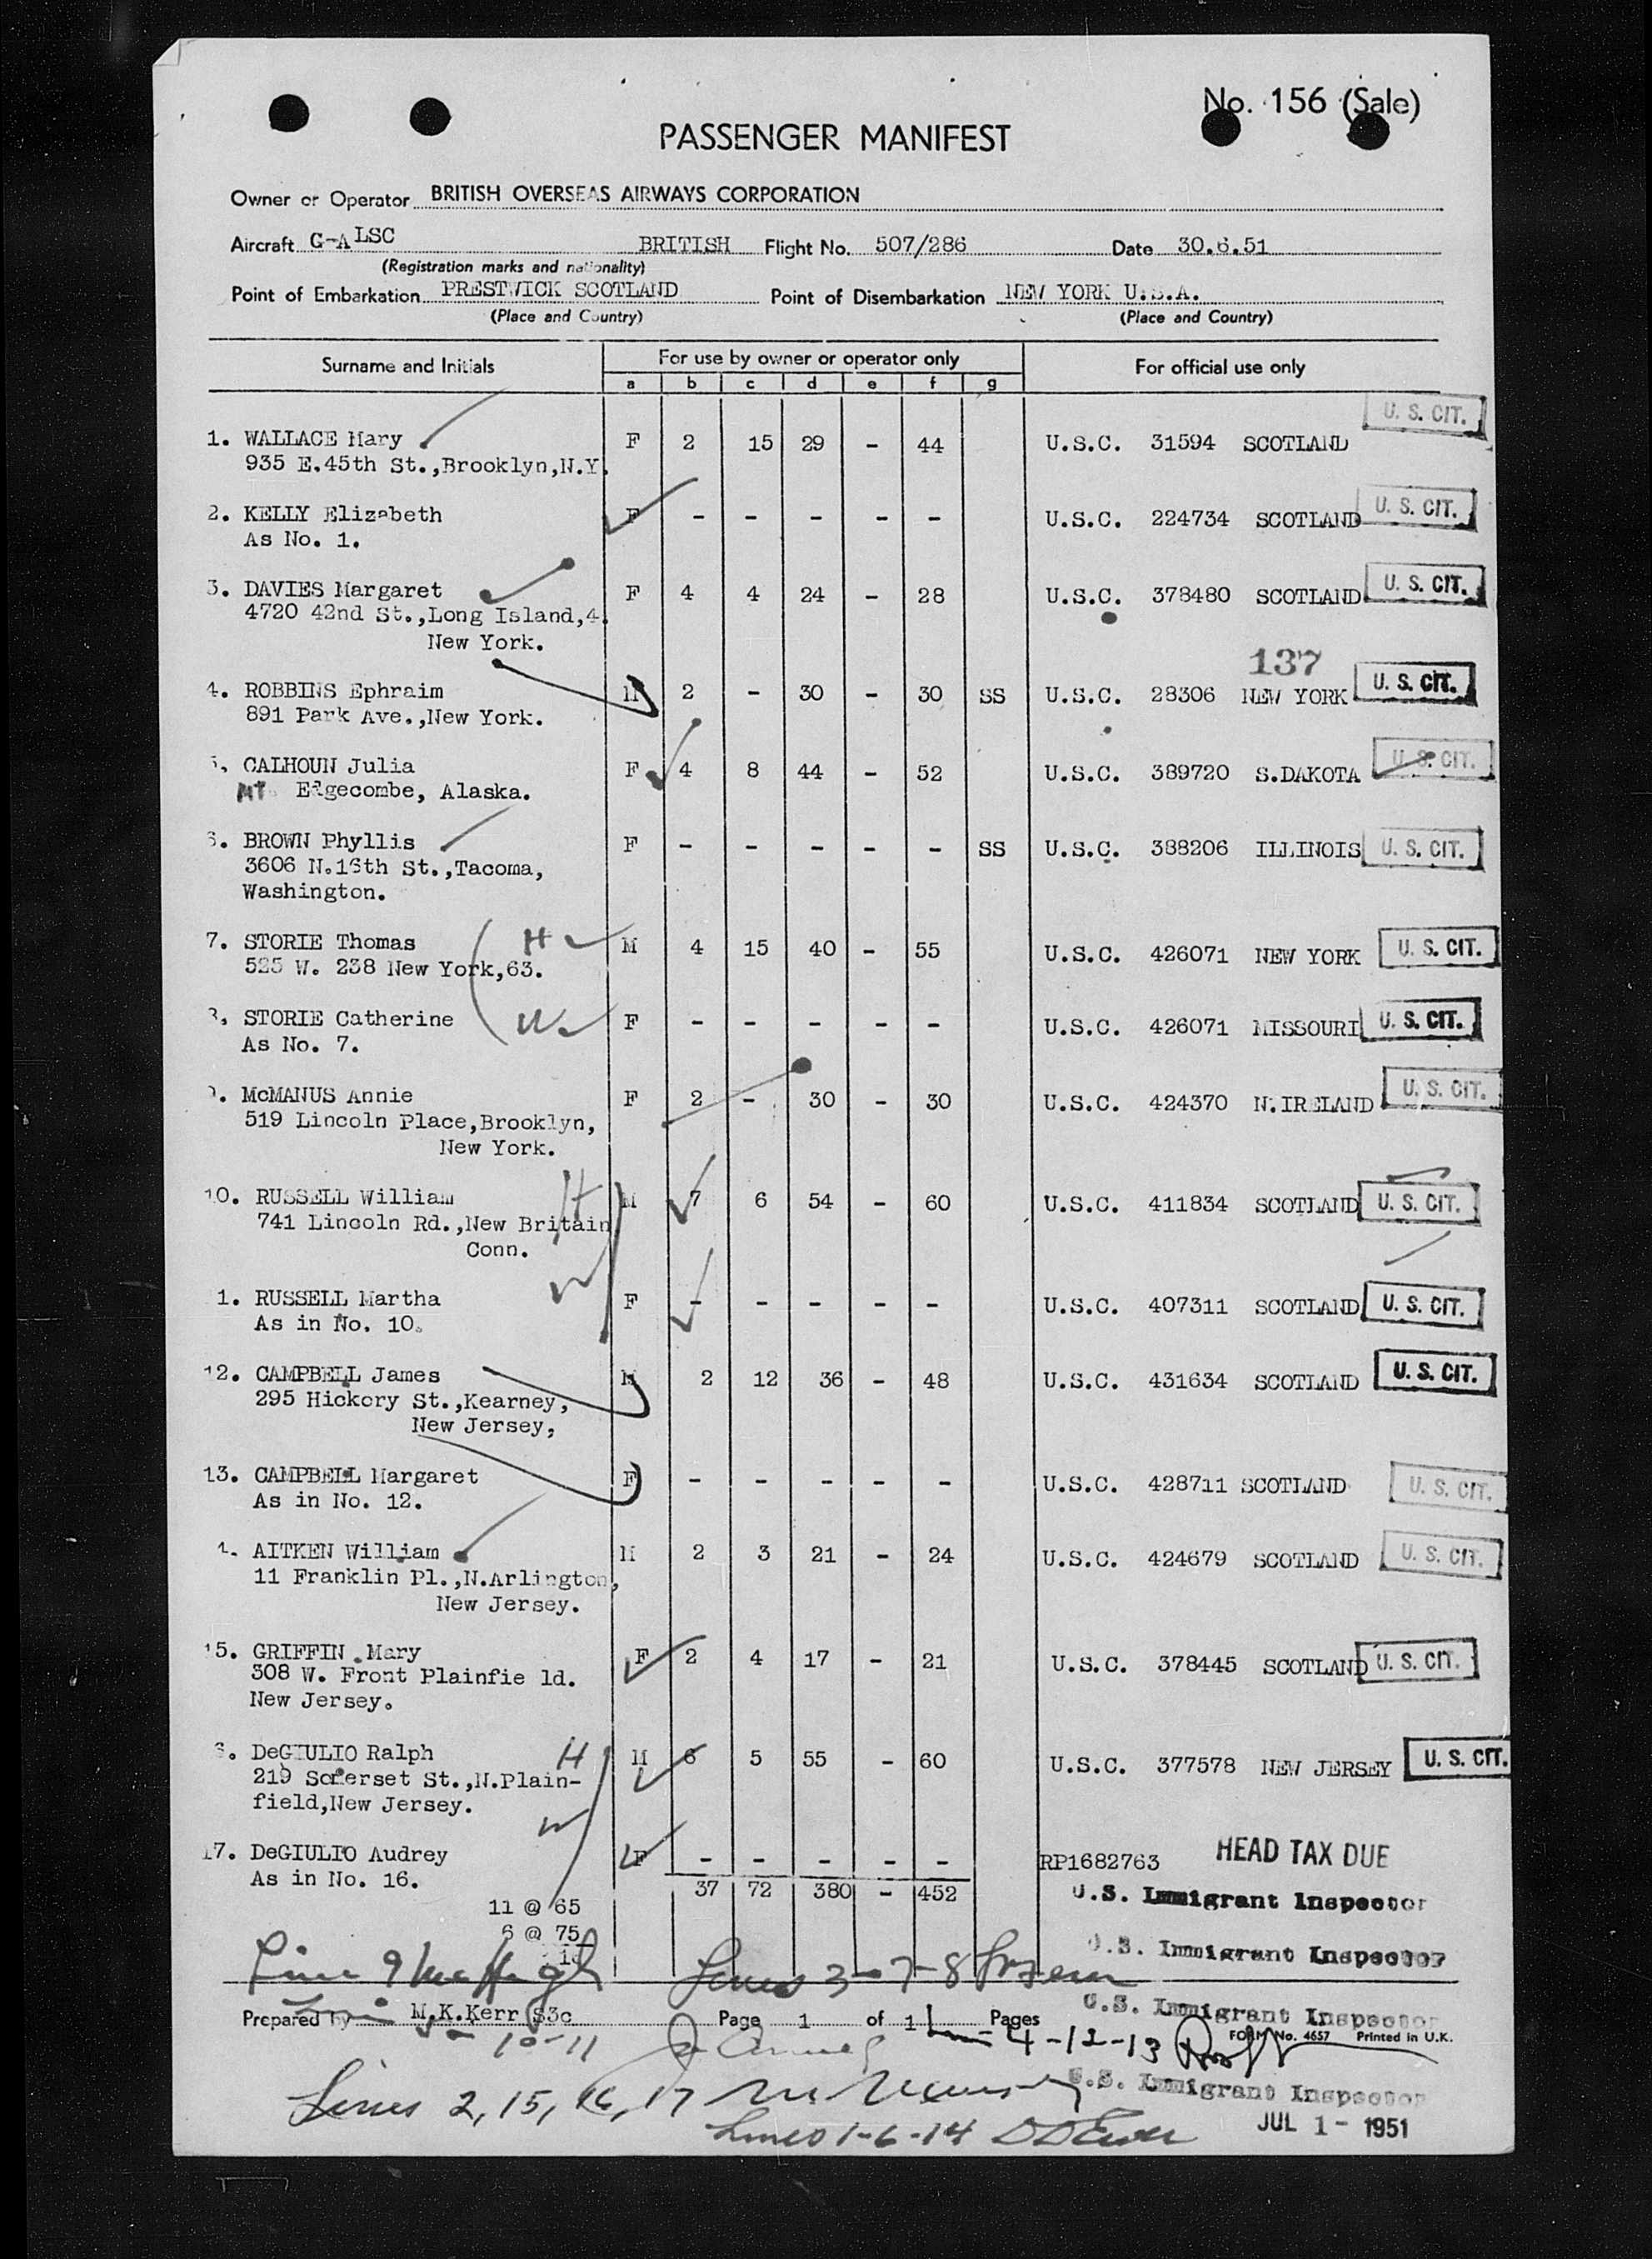 No. 156 (Sale)
PASSENGER MANIFEST
Owner or Operator BRITISH OVERSEAS AIRWAYS CORPORATION
Aircraft G-ALSC BRITISH Flight No. 507/286 Date 30.6.51
(Registration marks and nationality)
Point of Embarkation PRESTWICK SCOTLAND Point of Disembarkation NEW YORK U.S.A.
(Place and Country) (Place and Country)
Surname and Initials For use by owner or operator only For official use only
a b c d e f g
U. S. CIT.
1. WALLACE Mary F 2 15 29 - 44 U.S.C. 31594 SCOTLAND
935 E.45th St.,Brooklyn,N.Y.
2. KELLY Elizabeth F - - - - - U.S.C. 224734 SCOTLAND U. S. CIT.
As No. 1.
3. DAVIES Margaret F 4 4 24 - 28 U.S.C. 378480 SCOTLAND U. S. CIT.
4720 42nd St.,Long Island,4.
New York.
137
4. ROBBINS Ephraim M 2 - 30 - 30 SS U.S.C. 28306 NEW YORK U. S. CIT.
891 Park Ave.,New York.
5. CALHOUN Julia F 4 8 44 - 52 U.S.C. 389720 S.DAKOTA U. S. CIT.
MT. Edgecombe, Alaska.
6. BROWN Phyllis F - - - - - SS U.S.C. 388206 ILLINOIS U. S. CIT.
3606 N.16th St.,Tacoma,
Washington.
7. STORIE Thomas H M 4 15 40 - 55 U.S.C. 426071 NEW YORK U. S. CIT.
525 W. 238 New York,63.
8. STORIE Catherine W F - - - - - U.S.C. 426071 MISSOURI U. S. CIT.
As No. 7.
9. McMANUS Annie F 2 - 30 - 30 U.S.C. 424370 N.IRELAND U. S. CIT.
519 Lincoln Place,Brooklyn,
New York.
10. RUSSELL William H M 7 6 54 - 60 U.S.C. 411834 SCOTLAND U. S. CIT.
741 Lincoln Rd.,New Britain
Conn.
W
11. RUSSELL Martha F - - - - - U.S.C. 407311 SCOTLAND U. S. CIT.
As in No. 10.
12. CAMPBELL James M 2 12 36 - 48 U.S.C. 431634 SCOTLAND U. S. CIT.
295 Hickory St.,Kearney,
New Jersey,
13. CAMPBELL Margaret F - - - - - U.S.C. 428711 SCOTLAND U. S. CIT.
As in No. 12.
14. AITKEN William M 2 3 21 - 24 U.S.C. 424679 SCOTLAND U. S. CIT.
11 Franklin Pl.,N.Arlington,
New Jersey.
15. GRIFFIN Mary F 2 4 17 - 21 U.S.C. 378445 SCOTLAND U. S. CIT.
308 W. Front Plainfie ld.
New Jersey.
16. DeGIULIO Ralph H M 6 5 55 - 60 U.S.C. 377578 NEW JERSEY U. S. CIT.
219 Somerset St.,N.Plain-
field,New Jersey.
W
17. DeGIULIO Audrey F - - - - - RP1682763 HEAD TAX DUE
As in No. 16.
37 72 380 - 452 U.S. Immigrant Inspector
11 @ 65
6 @ 75
U.S. Immigrant Inspector
Line 9 Lines 3-7-8
Prepared by M.K.Kerr S3c Page 1 of 1 Pages U.S. Immigrant Inspector
FORM No. 4657 Printed in U.K.
10-11 4-12-13
U.S. Immigrant Inspector
Lines 2, 15, 16, 17
Lines 1-6-14
JUL 1 - 1951